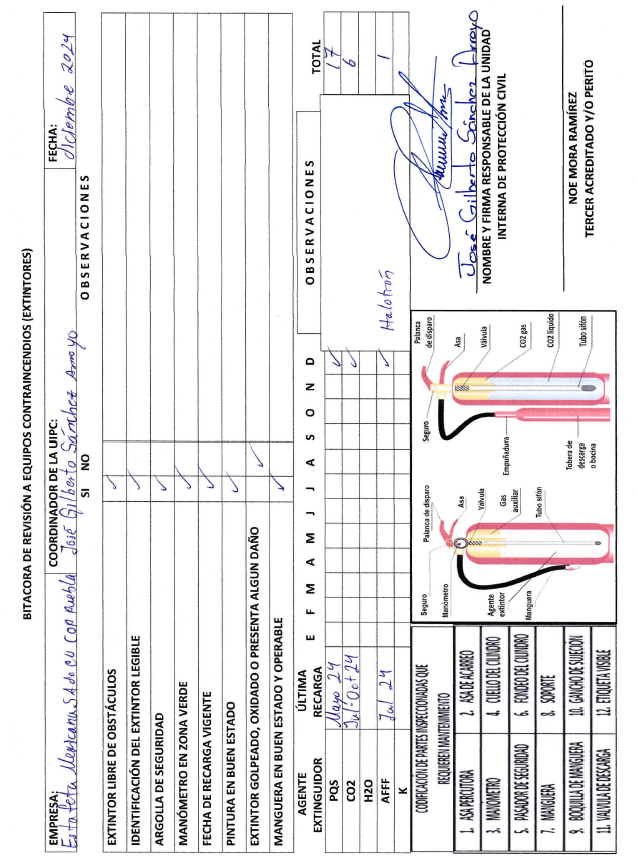 BITACORA DE REVISIÓN A EQUIPOS CONTRAINCENDIOS (EXTINTORES)
EMPRESA: COORDINADOR DE LA UIPC: FECHA:
Estafeta Mexicana S.A de CV COP Puebla José Gilberto Sánchez Arroyo diciembre 2024
SI NO OBSERVACIONES
EXTINTOR LIBRE DE OBSTÁCULOS ✓
IDENTIFICACIÓN DEL EXTINTOR LEGIBLE ✓
ARGOLLA DE SEGURIDAD ✓
MANÓMETRO EN ZONA VERDE ✓
FECHA DE RECARGA VIGENTE ✓
PINTURA EN BUEN ESTADO ✓
EXTINTOR GOLPEADO, OXIDADO O PRESENTA ALGUN DAÑO ✓
MANGUERA EN BUEN ESTADO Y OPERABLE ✓
AGENTE EXTINGUIDOR ÚLTIMA RECARGA E F M A M J J A S O N D OBSERVACIONES TOTAL
PQS Mayo 24 ✓ 17
CO2 Jul-Oct 24 ✓ 6
H2O
AFFF Jul 24 ✓ Halotrón 1
K
CODIFICACIÓN DE PARTES INSPECCIONADAS QUE
REQUIEREN MANTENIMIENTO
1. ASA PERCUTORA 2. ASA DE ACARREO
3. MANOMETRO 4. CUELLO DEL CILINDRO
5. PASADOR DE SEGURIDAD 6. FONDEO DEL CILINDRO
7. MANGUERA 8. SOPORTE
9. BOQUILLA DE MANGUERA 10. GANCHO DE SUJECION
11. VALVULA DE DESCARGA 12. ETIQUETA VISIBLE
Seguro
Palanca de disparo
Manómetro
Asa
Válvula
Gas
auxiliar
Agente
extintor
Tubo sifón
Manguera
Seguro
Palanca
de disparo
Asa
Válvula
CO2 gas
Empuñadura
CO2 líquido
Tobera de
descarga
o bocina
Tubo sifón
José Gilberto Sánchez Arroyo
NOMBRE Y FIRMA RESPONSABLE DE LA UNIDAD
INTERNA DE PROTECCIÓN CIVIL
NOE MORA RAMÍREZ
TERCER ACREDITADO Y/O PERITO